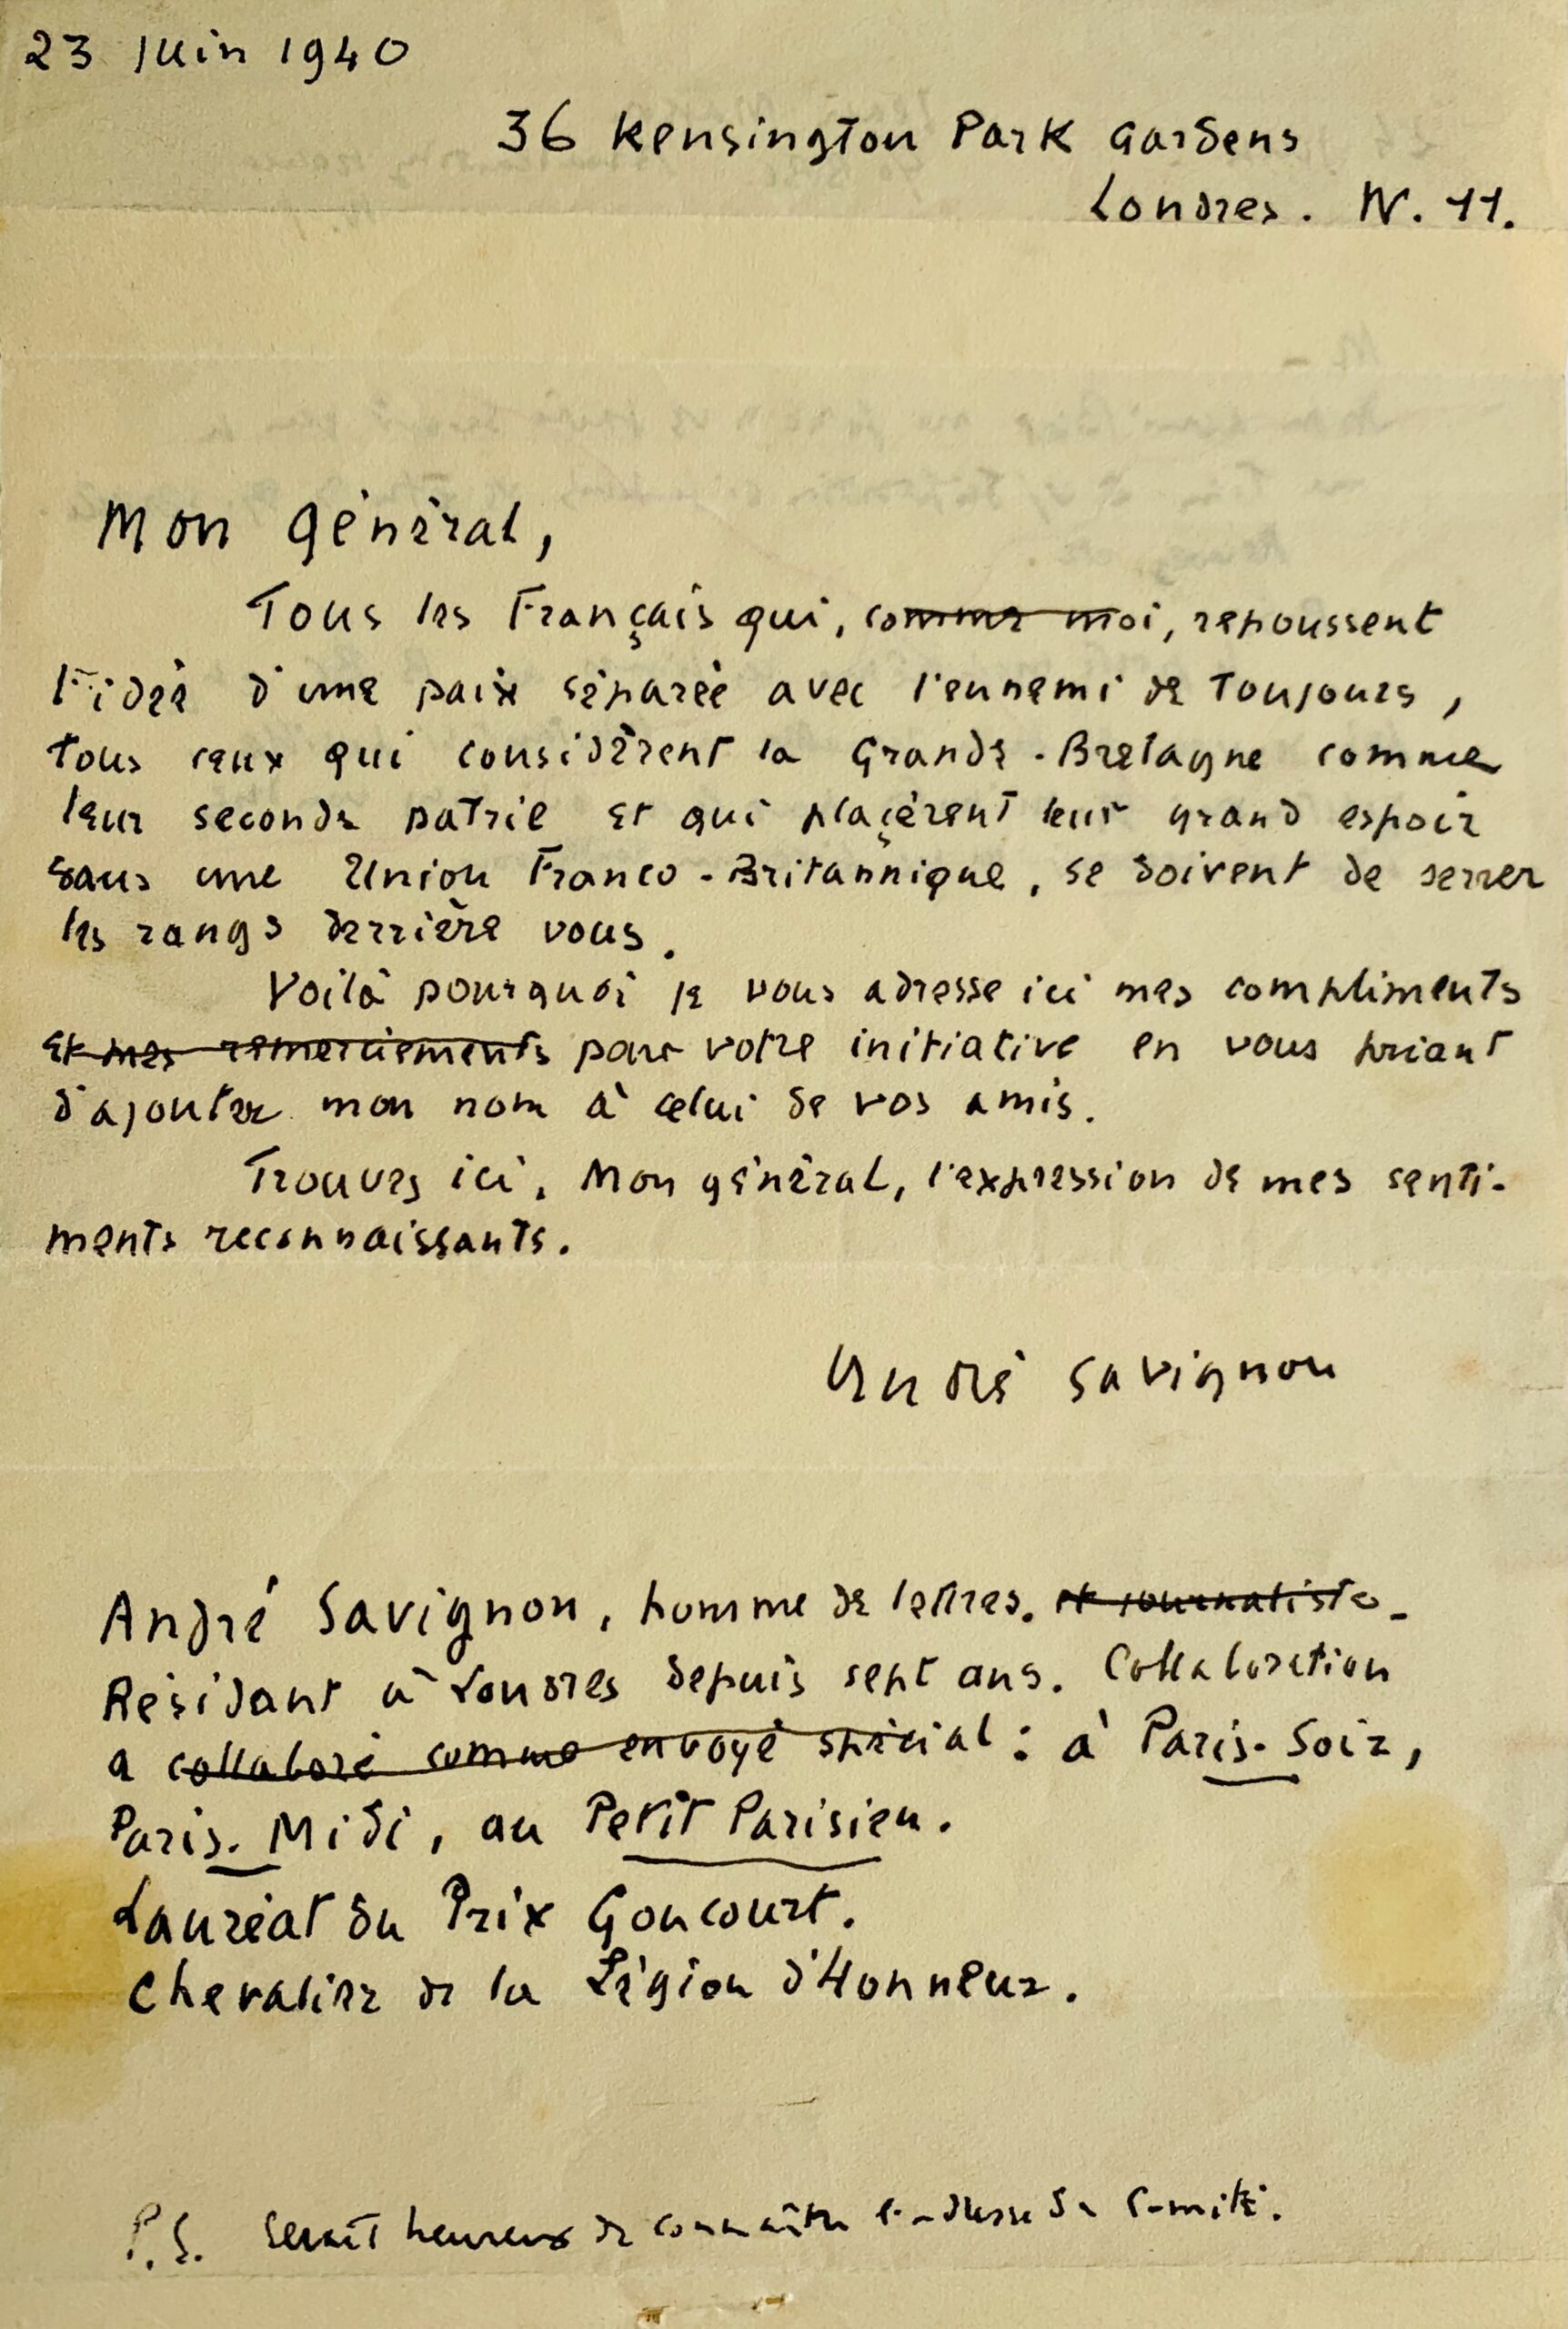 23 Juin 1940
36 Kensington Park Gardens
Londres. W. 11.
Mon général,
Tous les Français qui, comme moi, repoussent
l'idée d'une paix séparée avec l'ennemi de toujours,
tous ceux qui considèrent la Grande-Bretagne comme
leur seconde patrie et qui plaçèrent leur grand espoir
dans une Union Franco-Britannique, se doivent de serrer
les rangs derrière vous.
Voilà pourquoi je vous adresse ici mes compliments
et mes remerciements pour votre initiative en vous priant
d'ajouter mon nom à celui de vos amis.
Trouvez ici, Mon général, l'expression de mes senti-
ments reconnaissants.
André Savignon
André Savignon, homme de lettres. et journaliste.
Résidant à Londres depuis sept ans. Collaboration
a collaboré comme envoyé spécial : à Paris-Soir,
Paris-Midi, au Petit Parisien.
Lauréat du Prix Goncourt.
Chevalier de la Légion d'Honneur.
P.S. Serait heureux de connaître l'adresse du Comité.